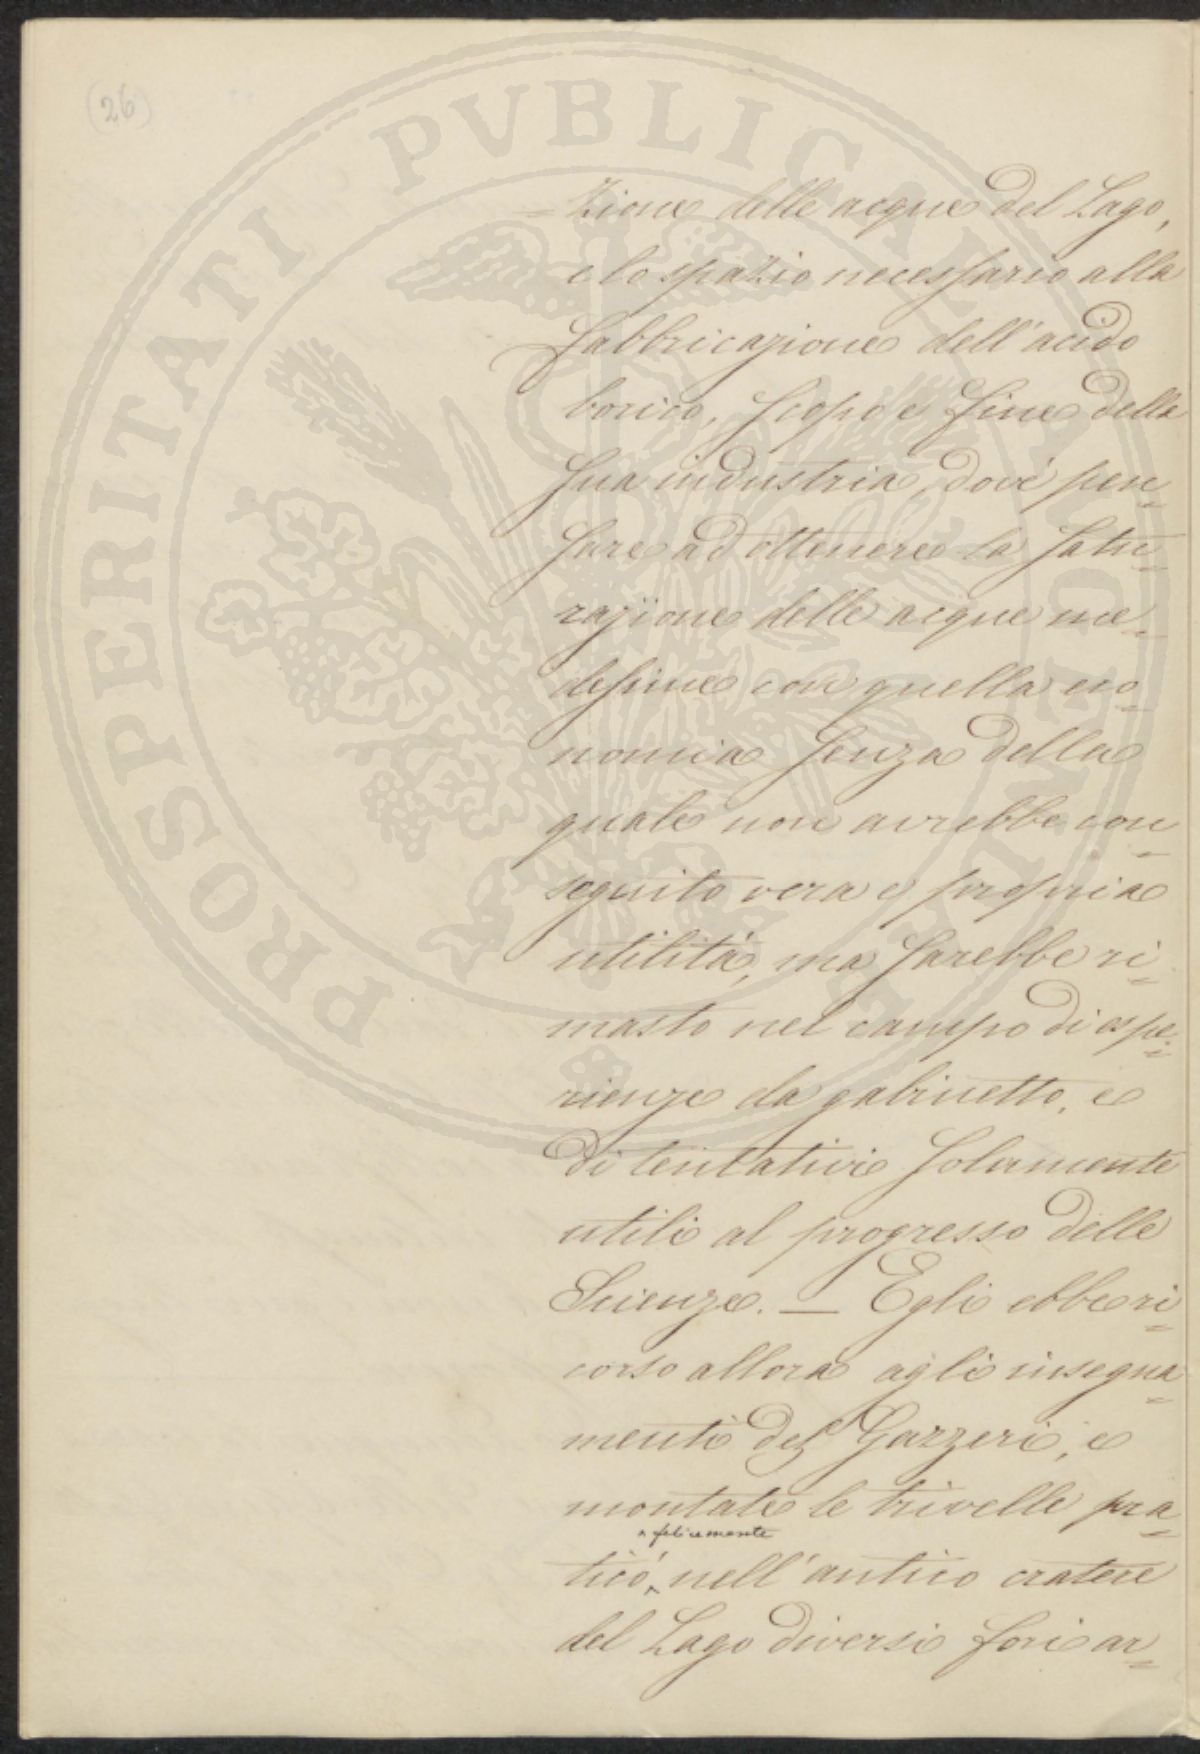 (26)
PROSPERITATI PVBLICAE AVGENDAE
=zione delle acque del Lago,
e lo spazio necessario alla
fabbricazione dell'acido
borico, scopo e fine della
sua industria, dovè pen=
sare ad ottenere la satu=
razione delle acque me=
desime con quella eco=
nomia senza della
quale non avrebbe con=
seguito vera e propria
utilità, ma sarebbe ri=
masto nel campo di espe=
rienze da gabinetto, e
di tentativi solamente
utili al progresso delle
Scienze. — Egli ebbe ri=
corso allora agli insegna=
menti del Gazzeri, e
montate le trivelle pra=
^ felicemente
ticò ^ nell'antico cratere
del Lago diversi fori ar=